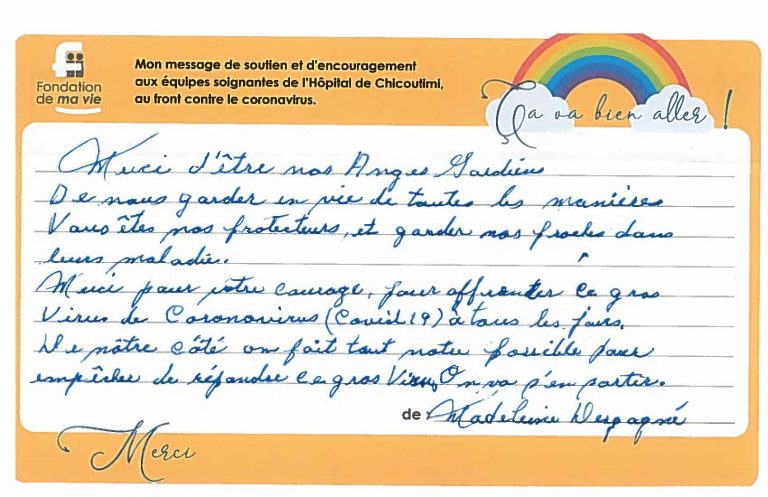 Fondation
de ma vie
Mon message de soutien et d'encouragement
aux équipes soignantes de l'Hôpital de Chicoutimi,
au front contre le coronavirus.
Ça va bien aller !
Merci d'être nos Anges Gardiens
De nous garder en vie de toutes les manières
Vous êtes nos protecteurs, et garder nos proches dans
leurs maladie.
Merci pour votre courage, pour affronter ce gros
Virus de Coronovirus (Covid 19) à tous les jours.
De nôtre côté on fait tout notre possible pour
empêcher de répandre ce gros Virus, On va s'en sortir.
de Madeleine Despagné
Merci